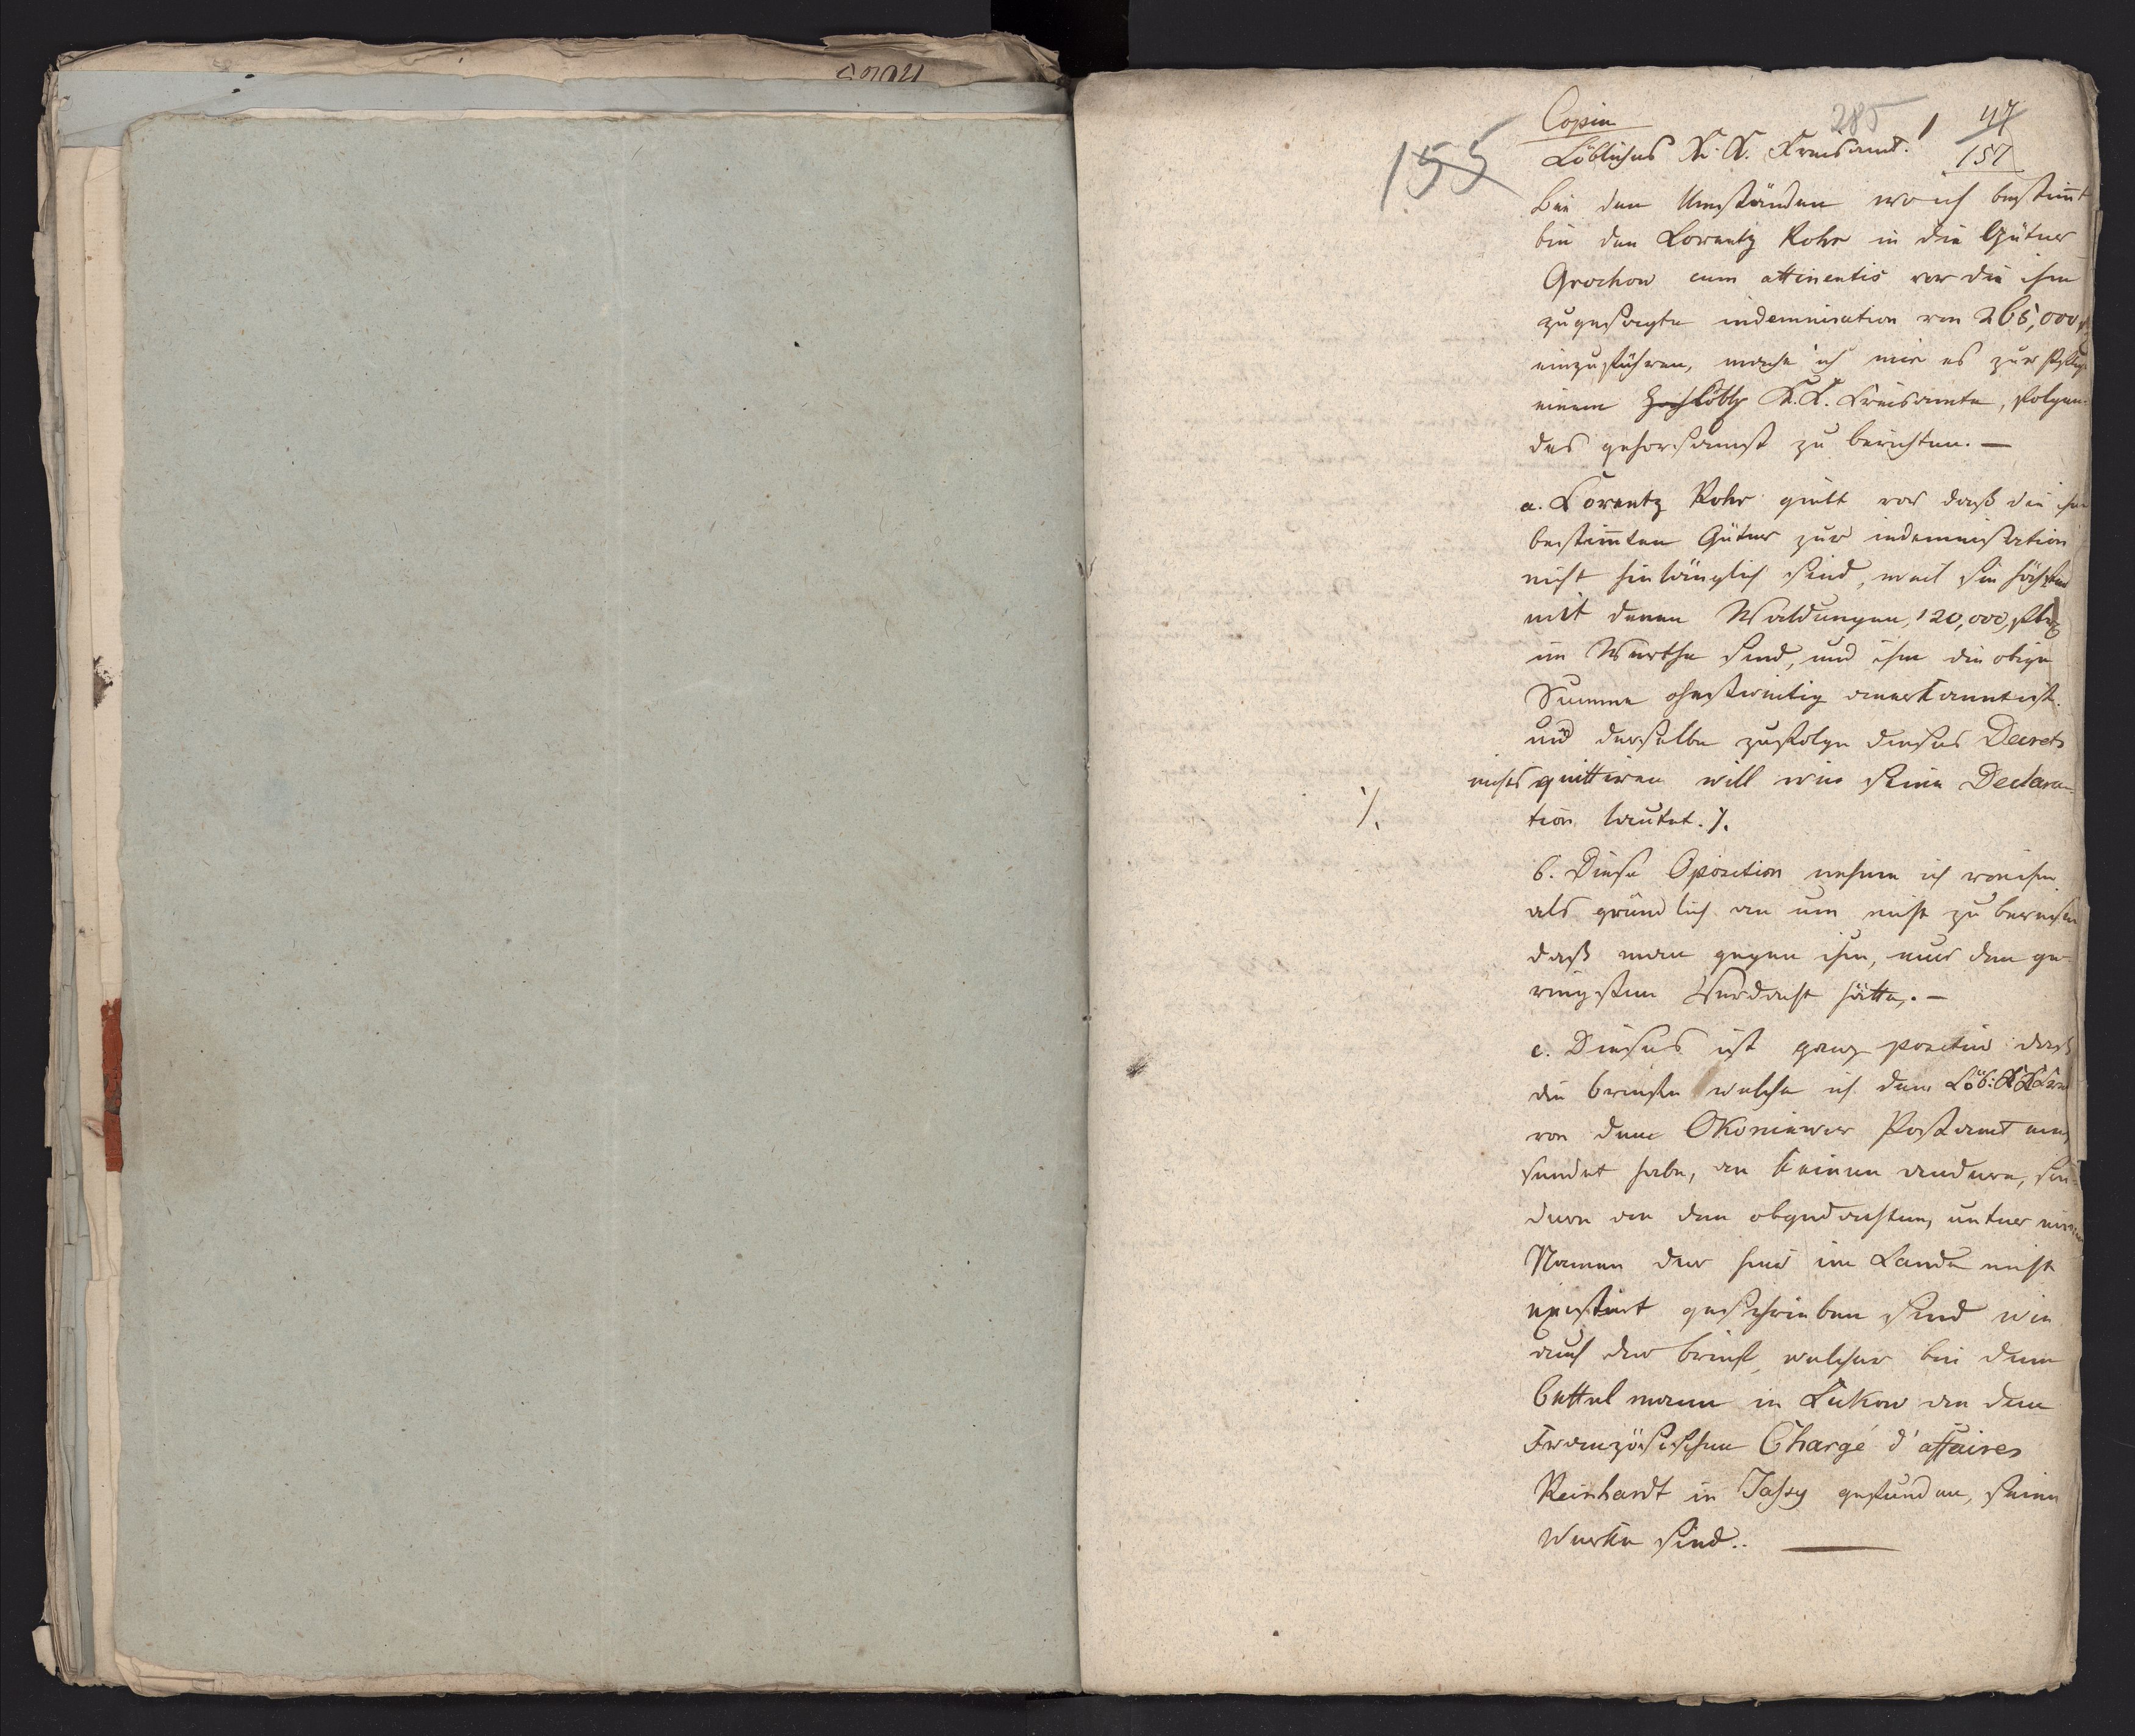 Copia
285
47
157
155
Löbliches K. K. Kreisamt!
Bei den Umständen wo ich bestim̄t
bin den Lorentz Rohr in die Güter
Grochow cum attinentis vor die ihm
zugesagte indemnisation von 265,000
einzuführen, mache ich mir es zur Pflicht
einem Hochlöbl K. K. Kreisamte, folgen-
des gehorsamst zu berichten. —
a. Lorentz Rohr giebt vor daß die ihm
bestim̄ten Güter zur indemnisation
nicht hinlänglich sind, weil sie höchstens
mit denen Waldungen, 120,000,
im Werthe sind, und ihm die obige
Summe ohnstreitig anerkannt ist.
und derselbe zufolge dieses Decrets
nichts quittiren will wie seine Declara-
tion lautet. ⁒
⁒
b. Diese Oposition nehme ich von ihm
als gründlich an um nicht zu
daß man gegen ihm, nur den ge-
ringsten Verdacht hätte. —
c. Dieses ist ganz positiv daß
die briefe welche ich dem Löb: K K
von dem Okoniewer Postamt
sendet habe, an keinen andern, son-
dern an den obgedachten, unter
Namen der hier im Lande nicht
existirt geschrieben sind wie
auch der brief, welcher bei dem
bettelmann in Lukow an dem
Französischen Chargé d'affaires
Reinhardt in Jassy gefunden, seine
Werke sind. —